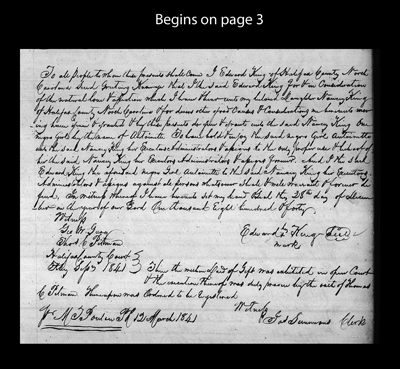 Begins on page 3
To all people to whom these presents shall Come I Edward King of Halifax County North
Carolina Send Greeting Know ye that I the said Edward King for & in Consideration
of the natural love & affection which I have & bear unto my beloved daughter Nancy King
of Halifax County North Carolina & for divers other good Causes & Considerations me hereunto mov
ing have given & granted & by these presents do give & grant unto the said Nancy King One
negro girl by the name of Antinette To have hold & enjoy the said negro Girl Antinette
unto the said Nancy King her Executors Administrators & assigns to the only proper use & behoof of
her the said Nancy King her Executors Administrators & assigns forever And I the said
Edward King the said negro Girl Antinette to the said Nancy King her Executors
Administrators & assigns against all persons whatsoever shall & will warrant & forever de
fend. In witness whereof I have hereunto set my hand & seal this 28th day of
in the year of our Lord One thousand Eight hundred & forty
Witness
Geo W Gary
Thos C Pitman
Edward King Seal
mark
Halifax County Court
1841 Then the within deed of Gift was exhibited in open Court
& the execution thereof was duly proven by the oath of Thomas
C Pitman Whereupon was Ordered to be registered
Witness
Jas Simmons Clerk
12 March 1841